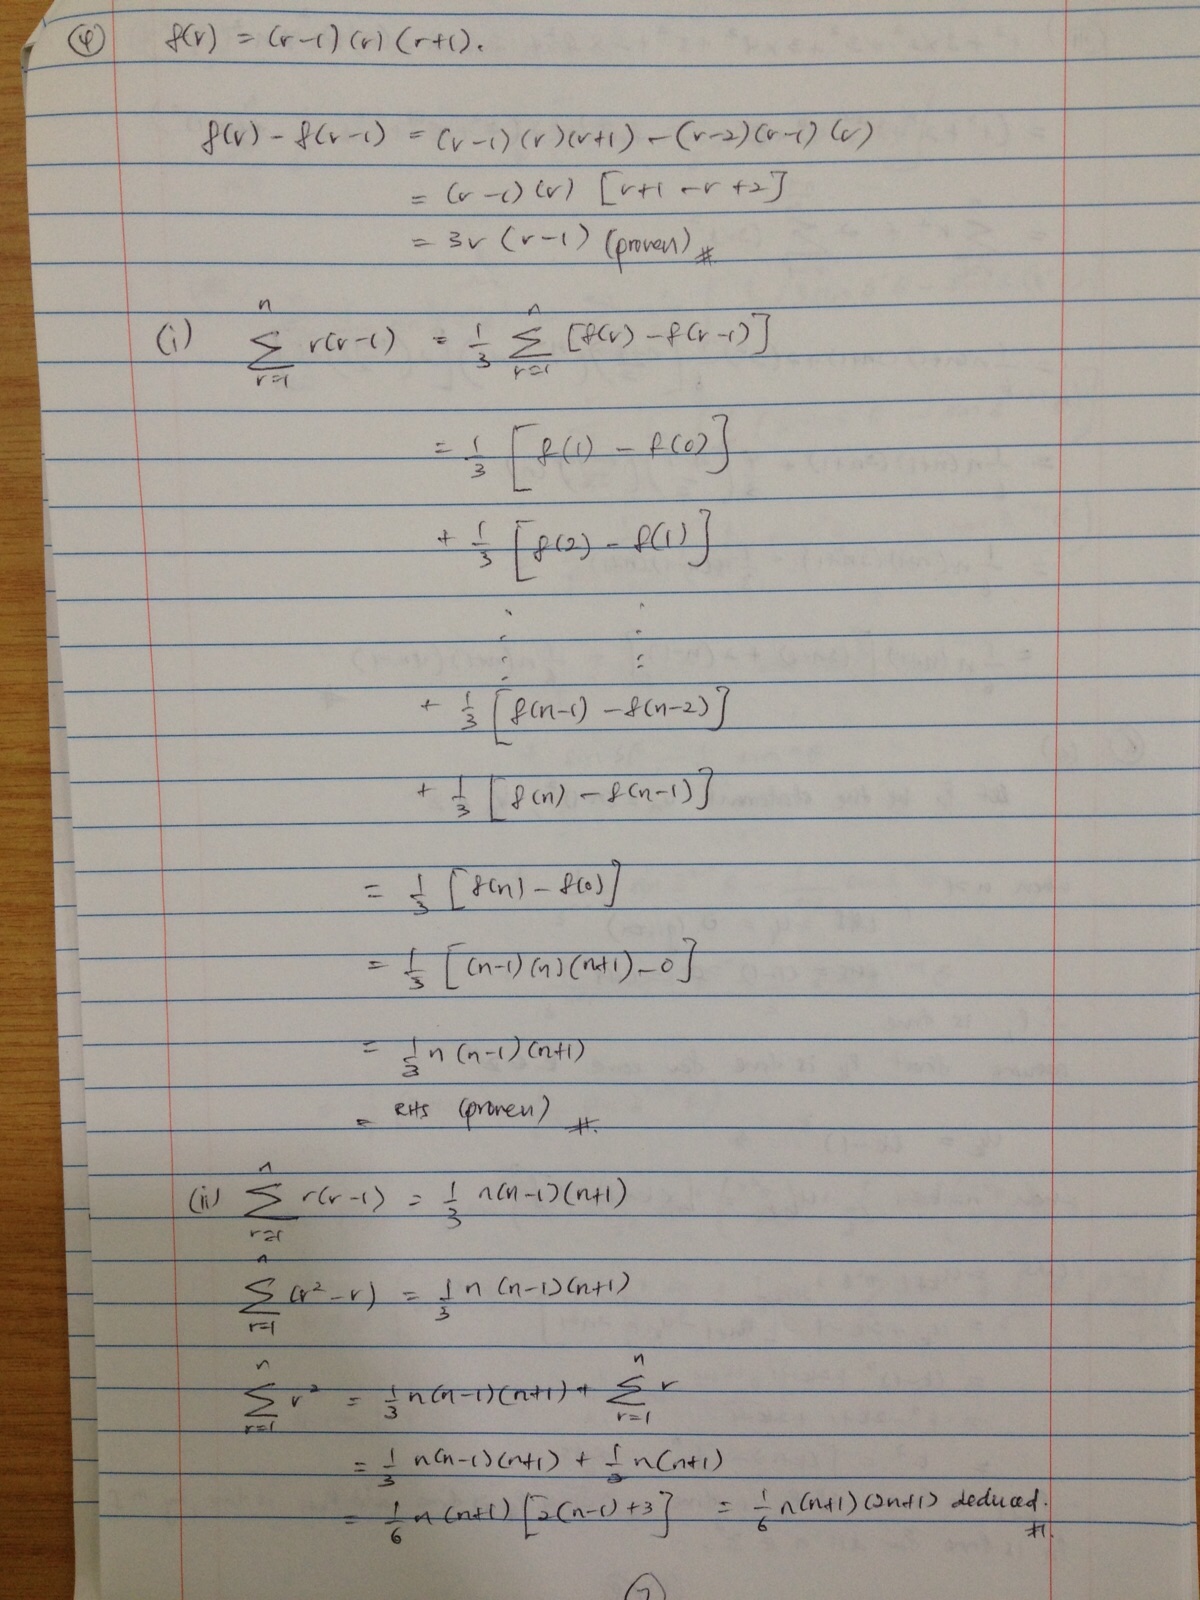 ④ f(r) = (r-1)(r)(r+1).
f(r) - f(r-1) = (r-1)(r)(r+1) - (r-2)(r-1)(r)
= (r-1)(r) [r+1-r+2]
= 3r(r-1) (proven) #
(i) ∑_{r=1}^{n} r(r-1) = 1/3 ∑_{r=1}^{n} [f(r) - f(r-1)]
= 1/3 [f(1) - f(0)]
+ 1/3 [f(2) - f(1)]
⋮ ⋮
+ 1/3 [f(n-1) - f(n-2)]
+ 1/3 [f(n) - f(n-1)]
= 1/3 [f(n) - f(0)]
= 1/3 [(n-1)(n)(n+1) - 0]
= 1/3 n(n-1)(n+1)
= RHS (proven) #.
(ii) ∑_{r=1}^{n} r(r-1) = 1/3 n(n-1)(n+1)
∑_{r=1}^{n} (r² - r) = 1/3 n(n-1)(n+1)
∑_{r=1}^{n} r² = 1/3 n(n-1)(n+1) + ∑_{r=1}^{n} r
= 1/3 n(n-1)(n+1) + 1/2 n(n+1)
= 1/6 n(n+1) [2(n-1)+3] = 1/6 n(n+1)(2n+1) deduced. #